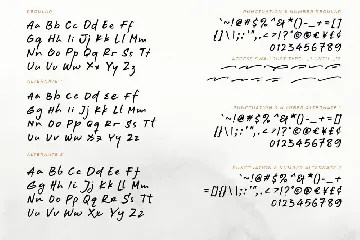 REGULAR
Aa Bb Cc Dd Ee Ff
Gg Hh Ii Jj Kk Ll Mm
Nn Oo Pp Qq Rr Ss Tt
Uu Vv Ww Xx Yy Zz
ALTERNATE 1
Aa Bb Cc Dd Ee Ff
Gg Hh Ii Jj Kk Ll Mm
Nn Oo Pp Qq Rr Ss Tt
Uu Vv Ww Xx Yy Zz
ALTERNATE 2
Aa Bb Cc Dd Ee Ff
Gg Hh Ii Jj Kk Ll Mm
Nn Oo Pp Qq Rr Ss Tt
Uu Vv Ww Xx Yy Zz
PUNCTUATION & NUMBER REGULAR
`~!@#$%^&*()-_+=[]
{}\|;:'",.<>/?®©€¥£¢
0123456789
PUNCTUATION & NUMBER ALTERNATE 1
`~!@#$%^&*()-_+=[]
{}\|;:'",.<>/?®©€¥£¢
0123456789
PUNCTUATION & NUMBER ALTERNATE 2
`~!@#$%^&*()-_+
=[]{}\|;:'",.<>/?®©€¥£¢
0123456789